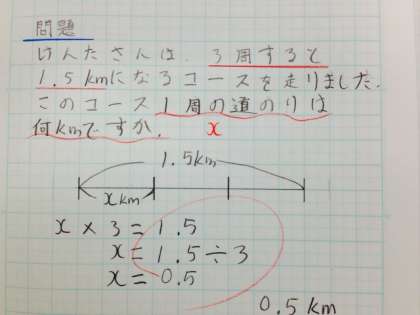 問題
けんたさんは、3周すると
1.5kmになるコースを走りました。
このコース1周の道のりは
何kmですか。 x
1.5km
xkm
x × 3 = 1.5
x = 1.5÷3
x = 0.5
0.5km